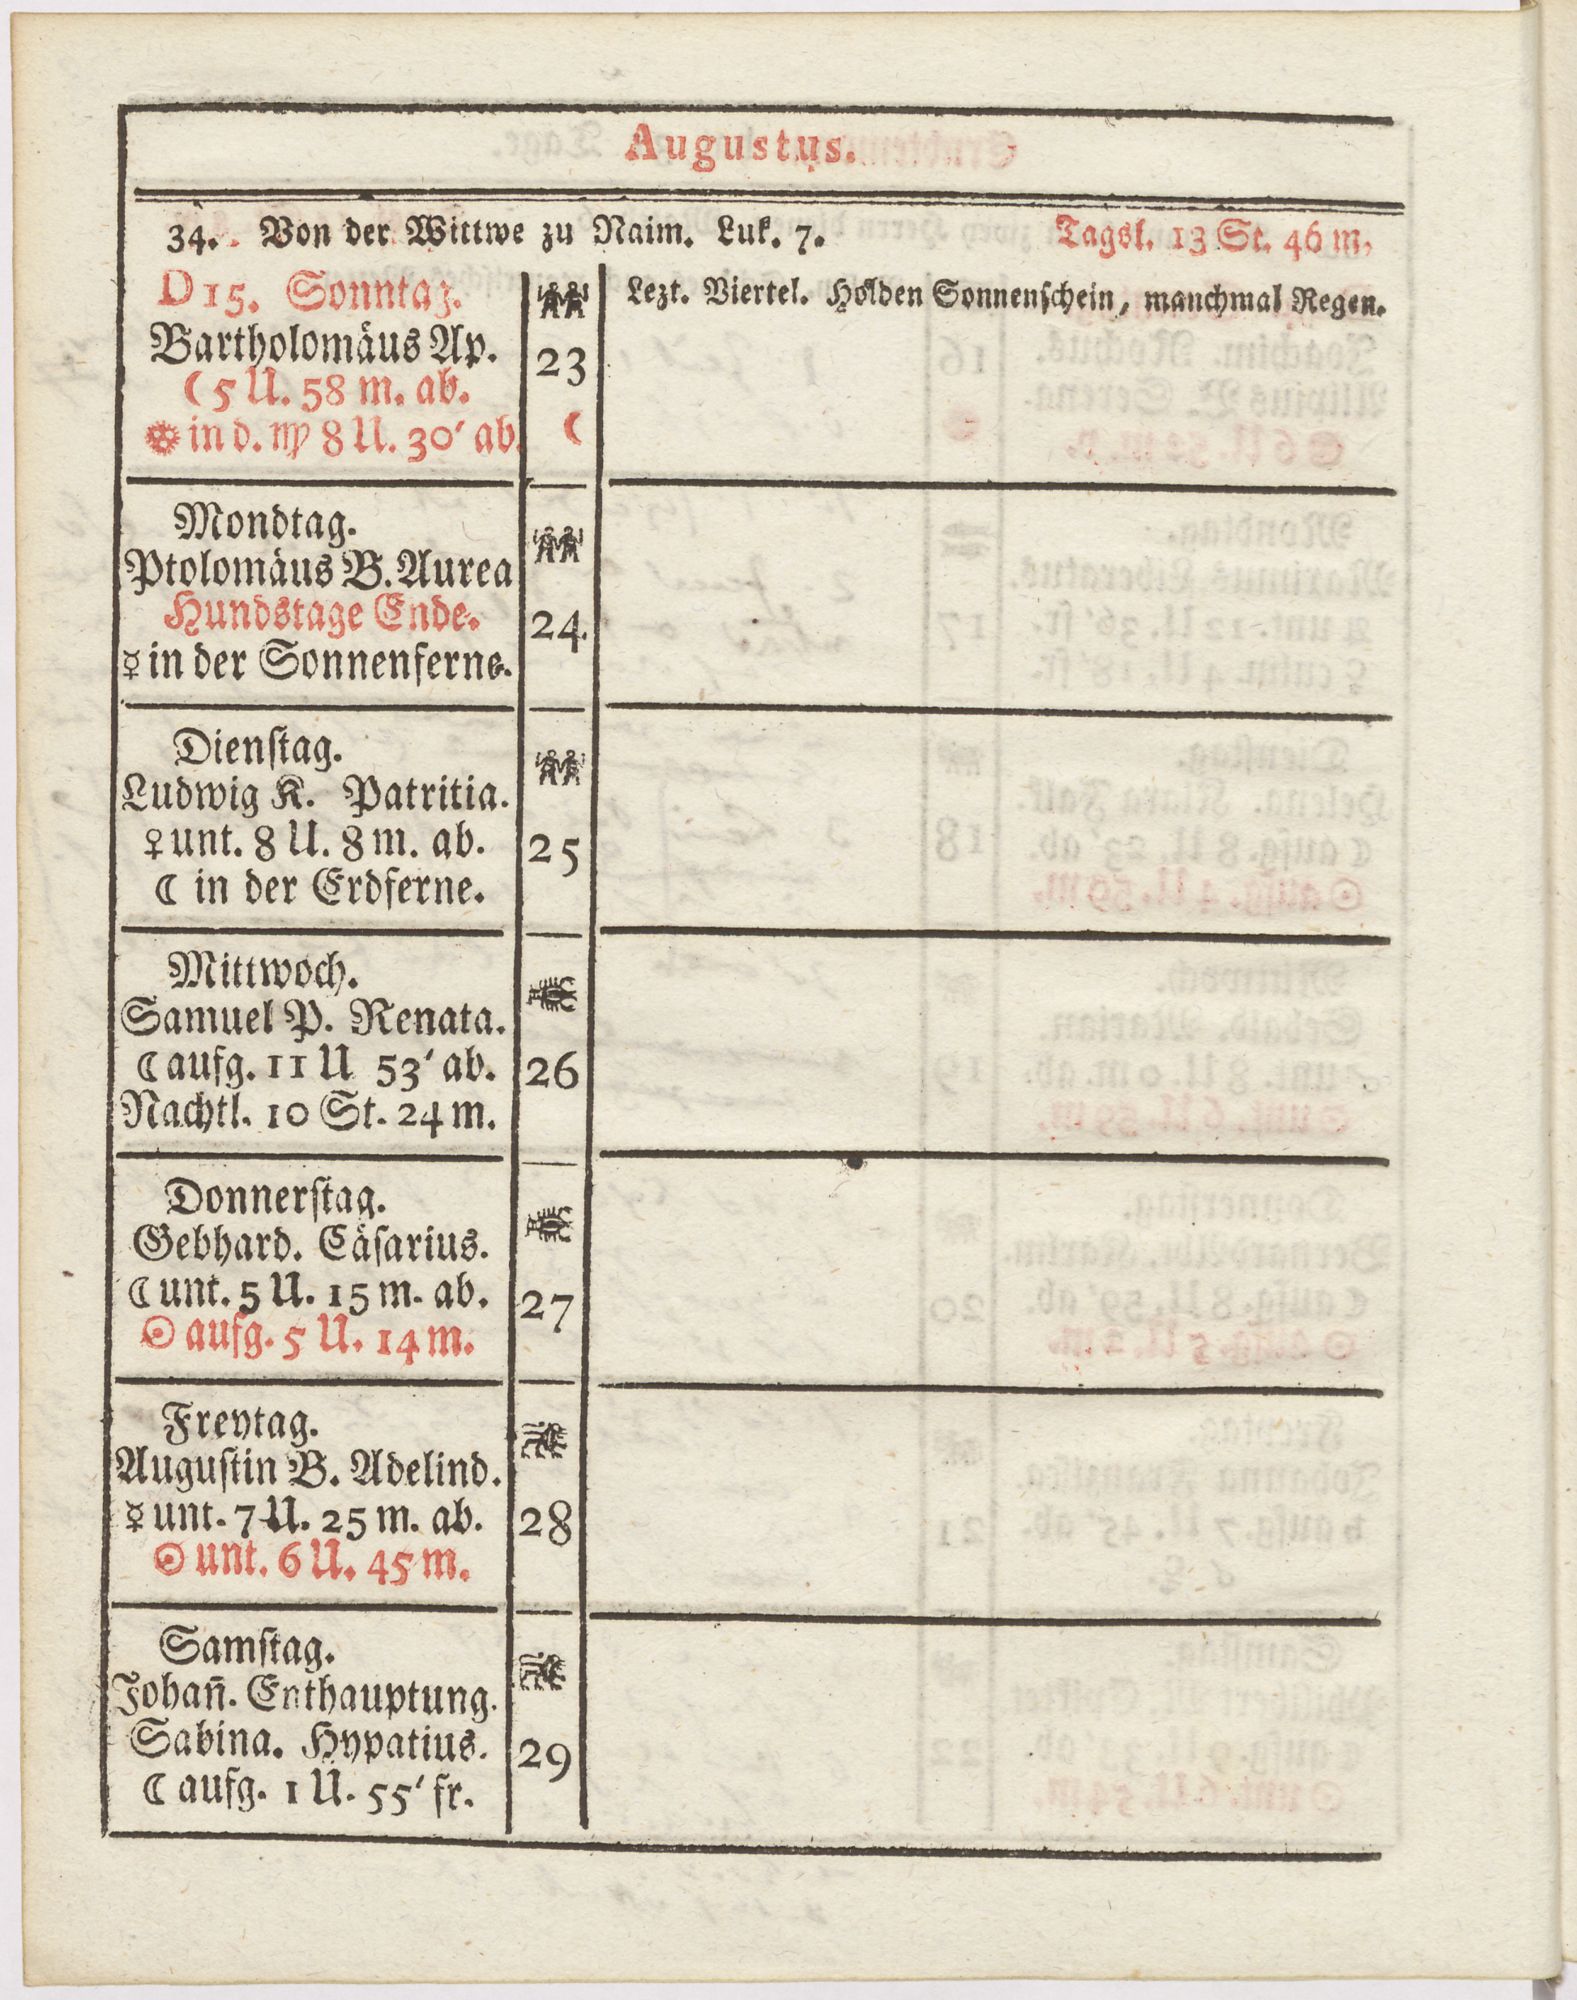 Augustus.
34. Von der Wittwe zu Naim. Luk. 7. Tagsl. 13 St. 46 m.
D 15. Sonntag.
Lezt. Viertel. Holden Sonnenschein, manchmal Regen.
Bartholomäus Ap.
23
☾ 5 U. 58 m. ab.
☉ in d. ♍ 8 U. 30′ ab.
☾
Mondtag.
Ptolomäus B. Aurea
Hundstage Ende.
24.
☿ in der Sonnenferne.
Dienſtag.
Ludwig K. Patritia.
♀ unt. 8 U. 8 m. ab.
25
☾ in der Erdferne.
Mittwoch.
Samuel P. Renata.
☾ aufg. 11 U 53′ ab.
26
Nachtl. 10 St. 24 m.
Donnerſtag.
Gebhard. Cäſarius.
☾ unt. 5 U. 15 m. ab.
27
☉ aufg. 5 U. 14 m.
Freytag.
Auguſtin B. Adelind.
☿ unt. 7 U. 25 m. ab.
28
☉ unt. 6 U. 45 m.
Samſtag.
Johan̄. Enthauptung.
Sabina. Hypatius.
29
☾ aufg. 1 U. 55′ fr.